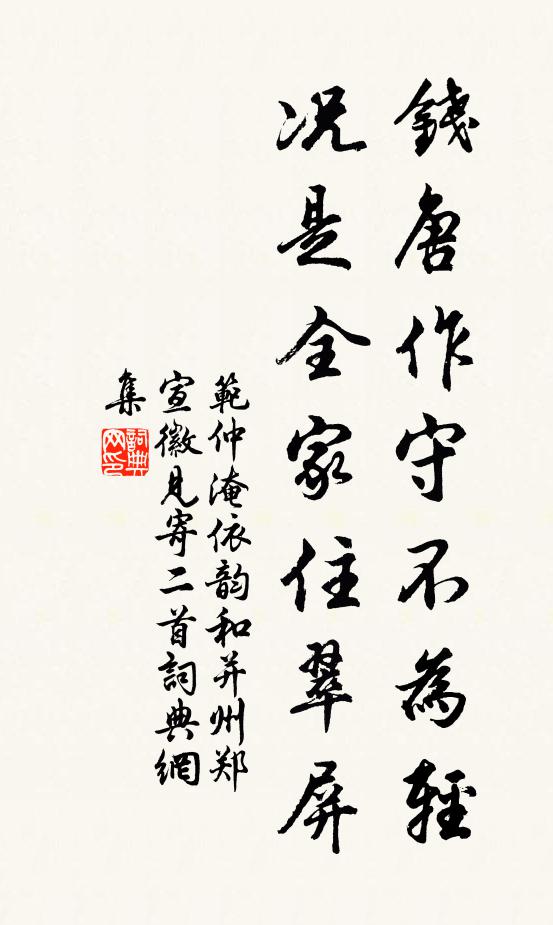 錢唐作守不為輕
况是全家住翠屏
範仲淹依韵和并州郑
宣徽見寄二首詞典網
集
詞典
网印